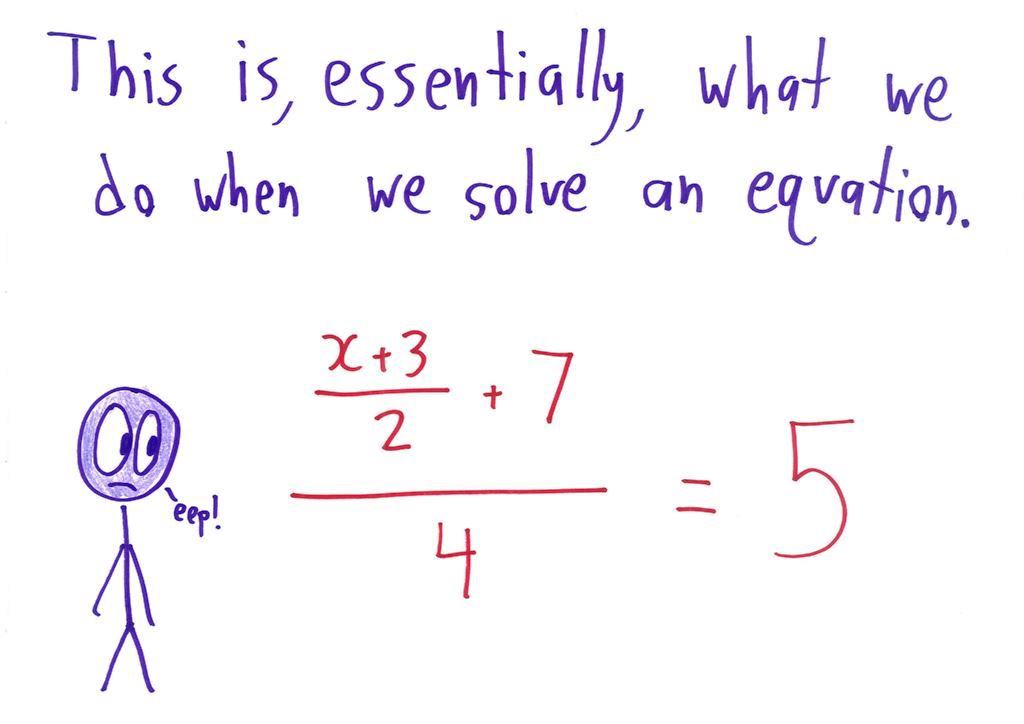 This is, essentially, what we
do when we solve an equation.
x+3
2
+ 7
4
= 5
eep!